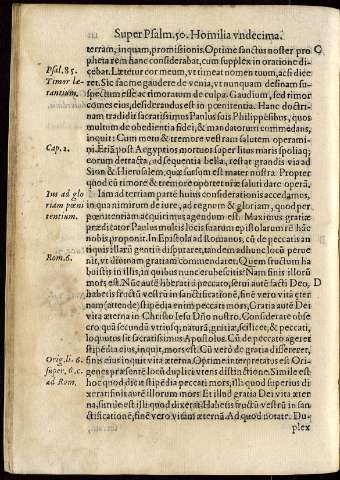 Super Psalm.50. Homilia vndecima.
terram, inquam, promissionis. Optime sanctus noster pro
C
pheta rem hanc considerabat, cum supplex in oratione di
Psal.85.
cebat. Lætetur cor meum, vt timeat nomen tuum, ac si dice
Timor læ-
ret. Sic fac me gaudere de venia, vt nunquam desinam su-
tantium.
spectum esse ac timoratum de culpa. Gaudium, sed timor
comes eius, desiderandus est in pœnitentia. Hanc doctri-
nam tradidit sacratissimus Paulus suis Philippēsibus, quos
multum de obedientia fidei, & mandatorum commēdans,
Cap.2.
inquit: Cum metu & tremore vestram salutem operami-
ni. Etiā post Aegyptios mortuos super litus maris spoliaq;
eorum detracta, ad sequentia bella, restat grandis via ad
Sion & Hierusalem, quæ sursum est mater nostra. Propter
quod cū timore & tremore oportet nr̄æ saluti dare operā,
Ius ad glo
Iam ad tertiam partē huius considerationis accedamus,
riam pœni
in qua nimirum de iure, ad regnum & gloriam, quod per
tentium.
pœnitentiam acquirimus agendum est. Maximus gratiæ
prædicator Paulus multis locis suarum epistolarum rē hāc
nobis proponit. In Epistola ad Romanos, cū de peccatis an
tiquis illarū gratiā disputaret, tandem ad hunc locū perue
Rom.6.
nit, vt diuinam gratiam commendaret. Quem fructum ha
buistis in illis, in quibus nunc erubescitis? Nam finis illorū
mors est. Nūc autē liberati a peccato, serui autē facti Deo,
D
habetis fructū vestrū in sanctificationē, finē vero vitā eter
nam stipēdia enim peccati mors, Gratia autē Dei
vita æterna in Christo Iesu Dn̄o nostro. Considerate obse
cro quā secundū vtriusq; naturā, gratiæ, scilicet, & peccati,
loquutus sit sacratissimus Apostolus. Cū de peccato ageret
stipēdia eius, inquit, mors est. Cū verò de gratia differeret,
Orig.li.6.
finis eius inquit vita æterna. Optime interpretatus est Ori-
super, 6.c.
genes præsentē locū duplici vtens distinctione. Simile est
ad Rom.
hoc quod dicit stipēdia peccati mors, illi quod superius di
xerat: finis autē illorum mors Et illud gratia Dei vita æter
na, simile est illi quod dixerat: Habetis fructū vestrū in san
ctificationē, finē vero vitam æternā Ad quod notate. Du-
plex